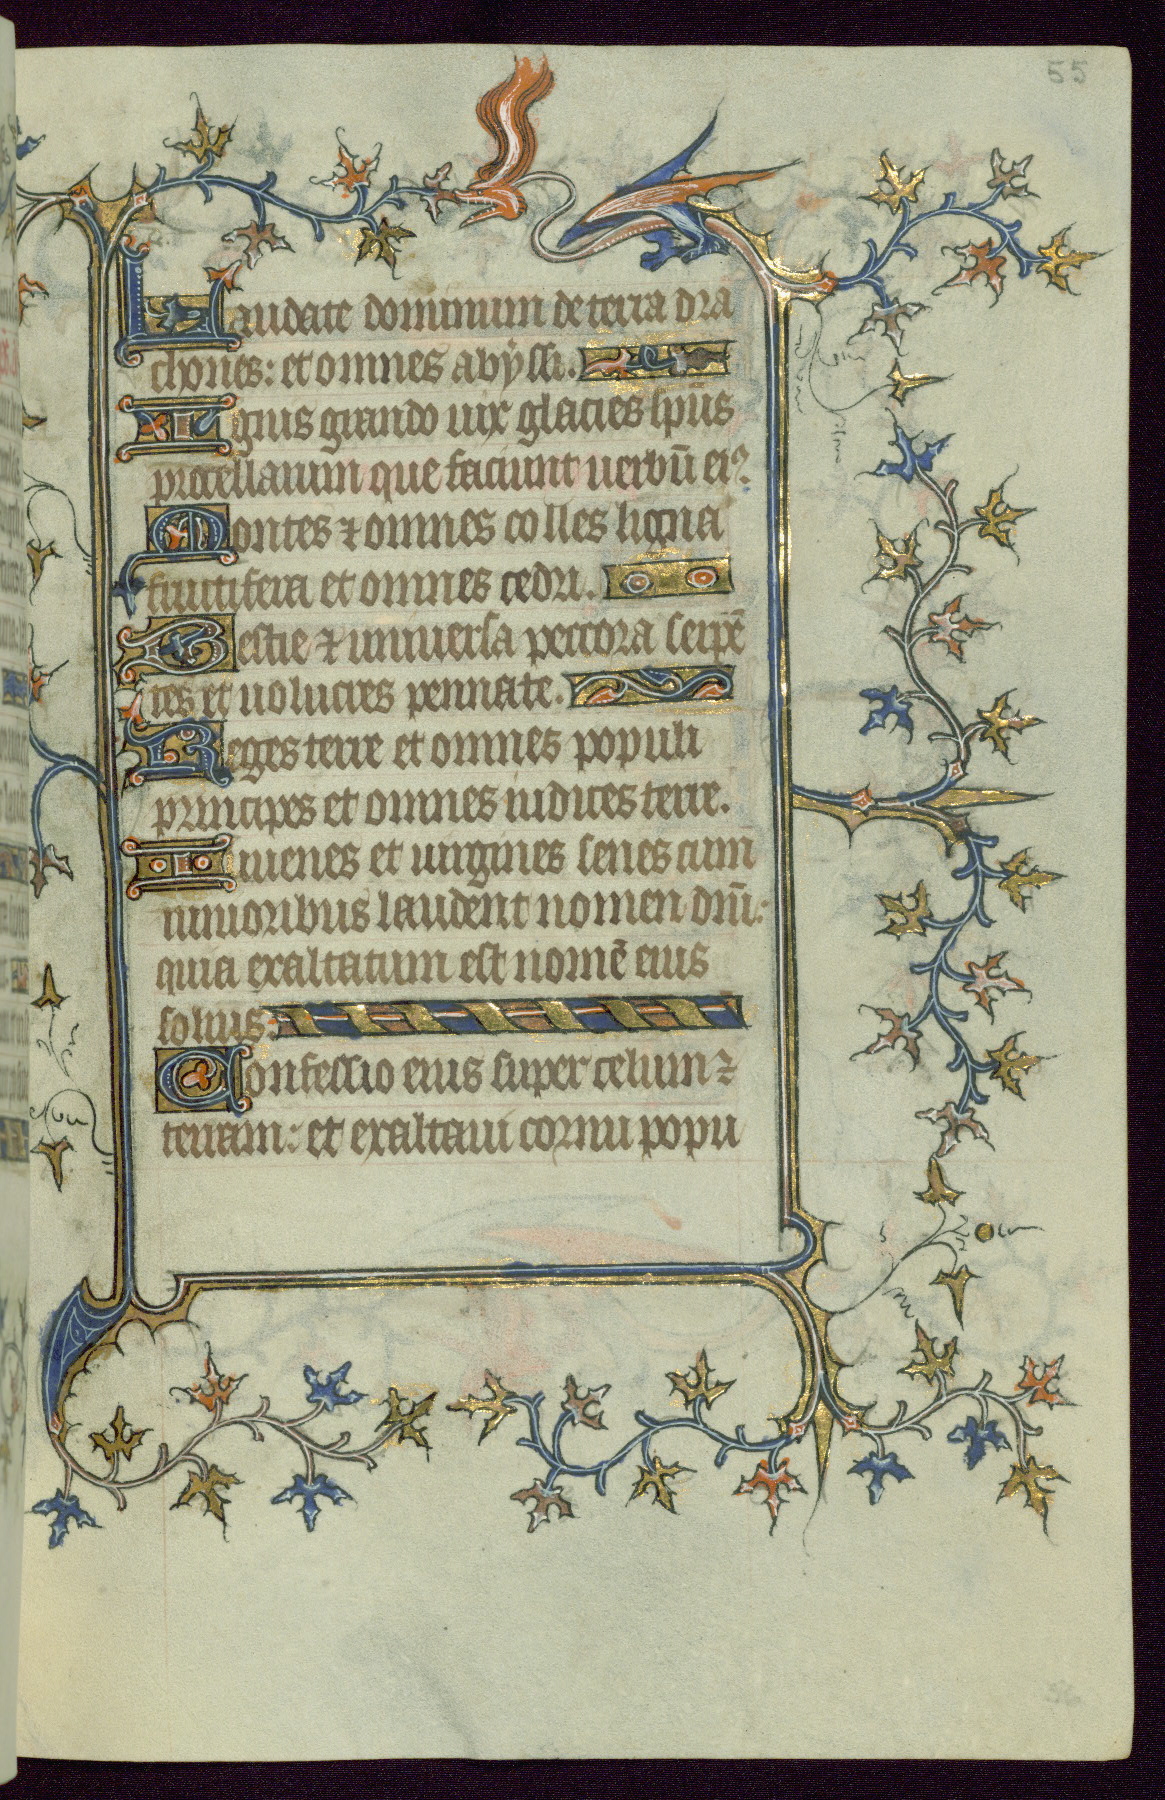 55
Laudate dominum de terra dra
chones: et omnes abyssi.
Ignis grando nix glacies sp̄us
procellarum que faciunt uerbū ei?
Montes ⁊ omnes colles ligna
fructifera et omnes cedri.
Bestie ⁊ uniuersa peccora serpē
tes et uolucres pennate.
Reges terre et omnes populi
principes et omnes iudices terre.
Iuuenes et uirgines senes cum
iunioribus laudent nomen dn̄i:
quia exaltatum est nomē eius
solius.
Confessio eius super celum ⁊
terram: et exaltaui cornu popu